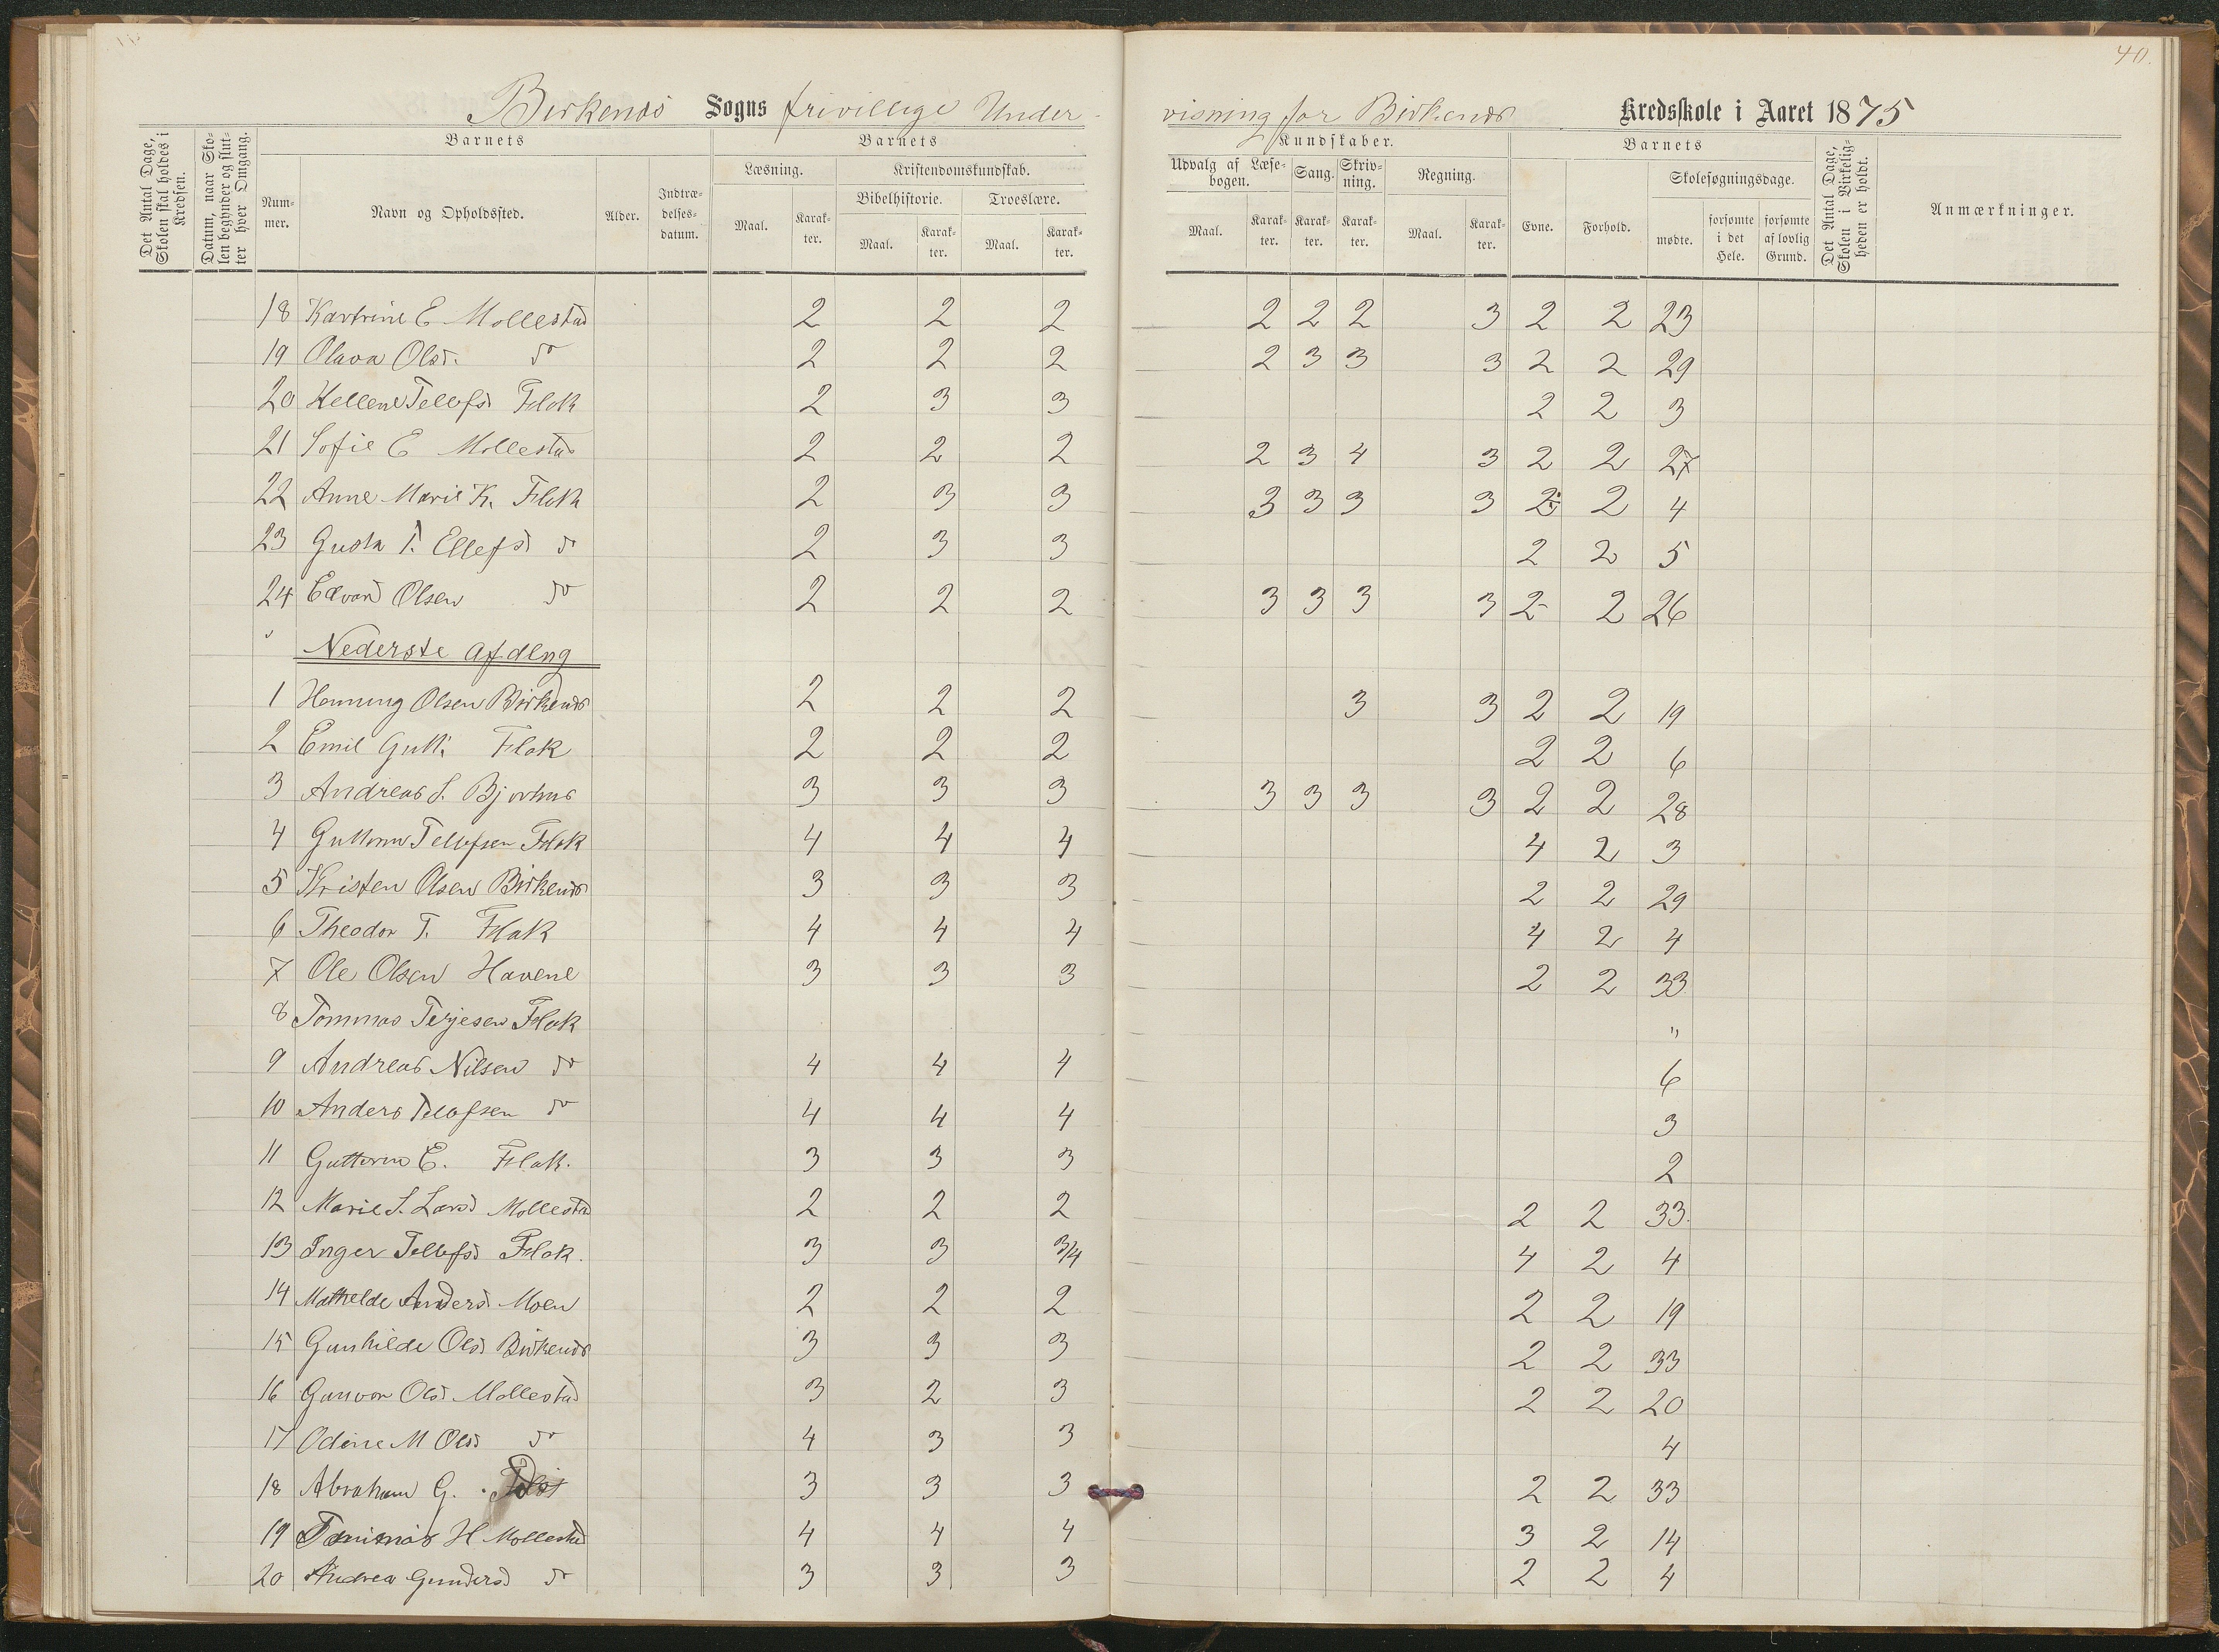 40.
Birkenæs Sogns frivillige Under- visning for Birkenæs Kredsskole i Aaret 1875
Det Antal Dage, Skolen skal holdes i Kredsen.
Datum, naar Skolen begynder og slutter hver Omgang.
Barnets
Nummer.
Navn og Opholdssted.
Alder.
Indtrædelsesdatum.
Barnets
Læsning.
Maal.
Karakter.
Kristendomskundskab.
Bibelhistorie.
Maal.
Karakter.
Troeslære.
Maal.
Karakter.
Kundskaber.
Udvalg af Læsebogen.
Maal.
Karakter.
Sang.
Karakter.
Skrivning.
Karakter.
Regning.
Maal.
Karakter.
Barnets
Evne.
Forhold.
Skolesøgningsdage.
mødte.
forsømte i det Hele.
forsømte af lovlig Grund.
Det Antal Dage, Skolen i Virkeligheden er holdt.
Anmærkninger.
18 Kartrine E Mollestad 2 2 2 2 2 2 3 2 2 23
19 Olava Olsd. do 2 2 2 2 3 3 3 2 2 29
20 Hellene Tellefsd Flak 2 3 3 2 2 3
21 Sofie E Mollestad 2 2 2 2 3 4 3 2 2 27
22 Anne Marie K. Flak 2 3 3 3 3 3 3 2 2 4
23 Gusta T. Ellefsd do 2 3 3 2 2 5
24 Edvard Olsen do 2 2 2 3 3 3 3 2- 2 26
Nederste Afdlng
1 Henning Olsen Birkenæs 2 2 2 3 3 2 2 19
2 Emil Gutt. Flak 2 2 2 2 2 6
3 Andreas S. Bjorhus 3 3 3 3 3 3 3 2 2 28
4 Guttorm Tellefsen Flak 4 4 4 4 2 3
5 Kristen Olsen Birkenæs 3 3 3 2 2 29
6 Theodor T. Flak 4 4 4 4 2 4
7 Ole Olsen Havene 3 3 3 2 2 33
8 Tommas Terjesen Flak "
9 Andreas Nilsen do 4 4 4 6
10 Anders Tellefsen do 4 4 4 3
11 Guttorm E. Flak. 3 3 3 2
12 Marie S. Larsd Mollestad 2 2 2 2 2 33.
13 Inger Tellefsd Flak. 3 3 3/4 4 2 4
14 Mathelde Andersd Moen 2 2 2 2 2 19
15 Gunhilde Olsd Birkenæs 3 3 3 2 2 33
16 Gunvor Olsd Mollestad 3 2 3 2 2 20
17 Odine M Olsd do 4 3 3 4
18 Abraham G. 3 3 3 2 2 33
19 Tommas H Mollestad 4 4 4 3 2 14
20 Andrea Gundersd do 3 3 3 2 2 4